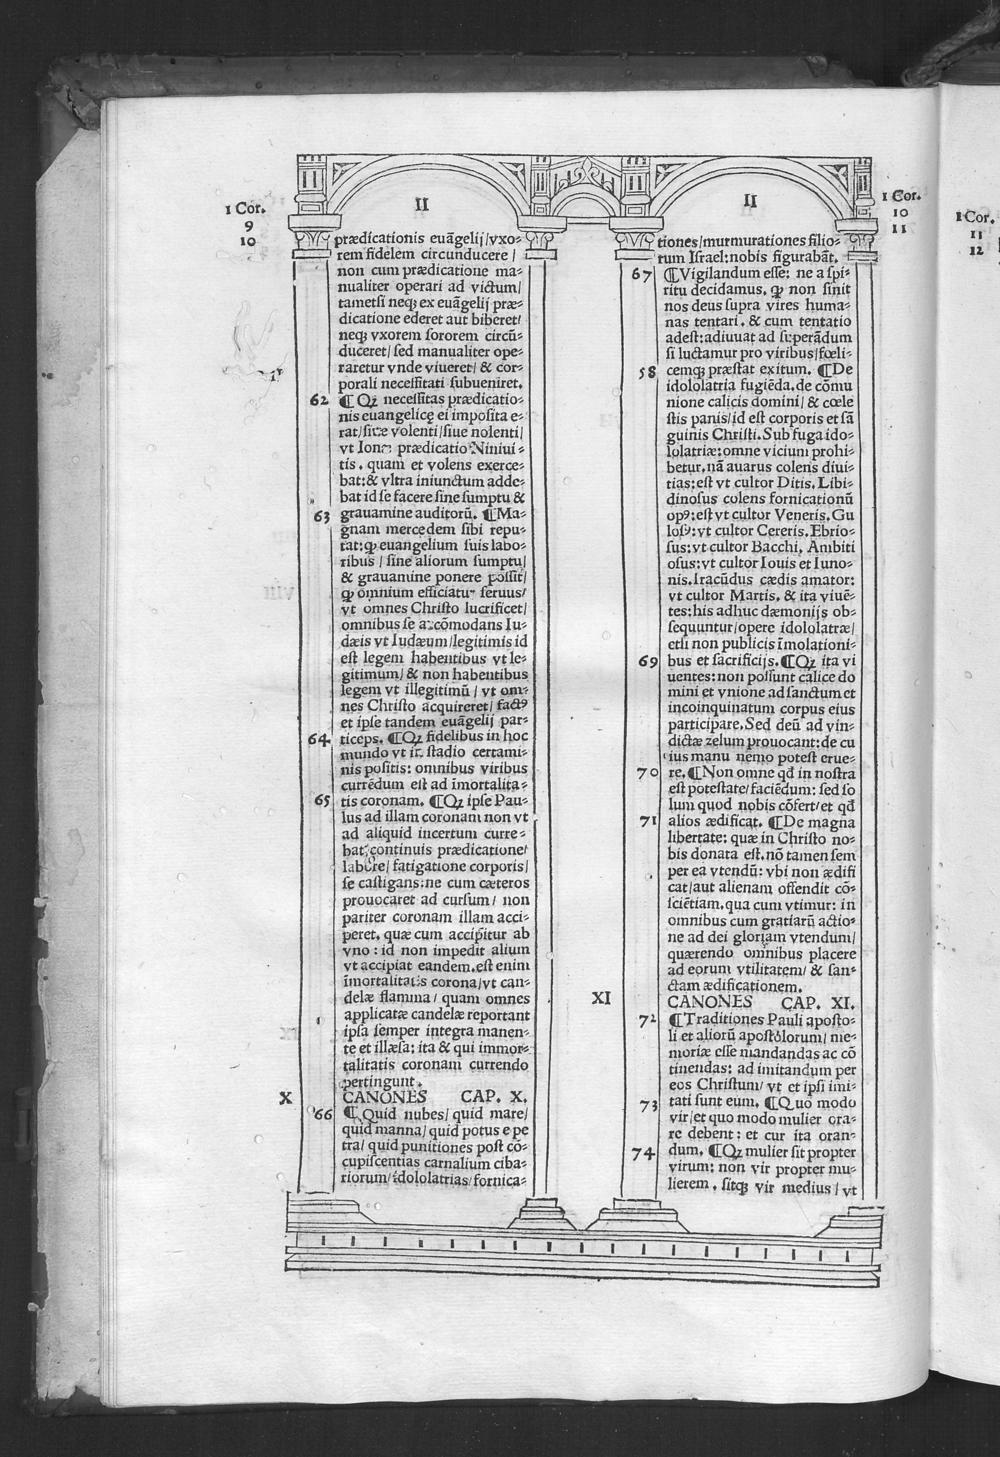 II
1 Cor.
9
10
prædicationis euãgelij/vxo-
rem fidelem circunducere /
non cum prædicatione ma-
nualiter operari ad victum/
tametsi neq; ex euãgelij præ-
dicatione ederet aut biberet/
neq; vxorem sororem circũ-
duceret/ sed manualiter ope-
raretur vnde viueret/ & cor-
porali necessitati subueniret.
62 ¶ Qꝫ necessitas prædicatio-
nis euangelicę ei imposita e-
rat/siue volenti/siue nolenti/
vt Ionæ prædicatio Niniui-
tis. quam et volens exerce-
bat:& vltra iniunctum adde-
bat id se facere sine sumptu &
63 grauamine auditorũ. ¶Ma-
gnam mercedem sibi repu-
tat:ꝙ euangelium suis labo-
ribus / sine aliorum sumptu/
& grauamine ponere possit/
ꝙ omnium efficiatur seruus/
vt omnes Christo lucrificet/
omnibus se accõmodans Iu-
dæis vt Iudæum/legitimis id
est legem habentibus vt le-
gitimum/ & non habentibus
legem vt illegitimũ / vt om-
nes Christo acquireret/ factꝰ
et ipse tandem euãgelij par-
64 ticeps. ¶Qꝫ fidelibus in hoc
mundo vt in stadio certami-
nis positis: omnibus viribus
currēdum est ad ĩmortalita-
65 tis coronam. ¶Qꝫ ipse Pau-
lus ad illam coronam non vt
ad aliquid incertum curre-
bat; continuis prædicatione/
labore/ fatigatione corporis/
se castigans:ne cum cæteros
prouocaret ad cursum/ non
pariter coronam illam acci-
peret. quæ cum accipitur ab
vno : id non impedit alium
vt accipiat eandem.est enim
ĩmortalitatis corona/vt can-
delæ flamma / quam omnes
applicatæ candelæ reportant
ipsa semper integra manen-
te et illæsa: ita & qui immor-
talitatis coronam currendo
pertingunt.
X CANONES CAP. X.
66 ¶ Quid nubes/ quid mare/
quid manna/ quid potus e pe
tra/ quid punitiones post cõ-
cupiscentias carnalium ciba-
riorum/idololatrias/fornica-
II
1 Cor.
10
11
tiones/murmurationes filio-
rum Israel:nobis figurabãt.
67 ¶Vigilandum esse: ne a spi-
ritu decidamus. ꝙ non sinit
nos deus supra vires huma-
nas tentari. & cum tentatio
adest:adiuuat ad superãdum
si luctamur pro viribus/fœli-
58 cemq; præstat exitum. ¶De
idololatria fugiẽda.de cõmu
nione calicis domini/ & cœle
stis panis/id est corporis et sã
guinis Christi. Sub fuga ido-
lolatriæ:omne vicium prohi-
betur.nã auarus colens diui-
tias:est vt cultor Ditis. Libi-
dinosus colens fornicationũ
opꝰ:est vt cultor Veneris. Gu
losꝰ: vt cultor Cereris. Ebrio-
sus:vt cultor Bacchi. Ambiti
osus:vt cultor Iouis et Iuno-
nis.Iracũdus cædis amator:
vt cultor Martis. & ita viuẽ-
tes:his adhuc dæmonijs ob-
sequuntur/opere idololatræ/
etsi non publicis ĩmolationi-
69 bus et sacrificijs. ¶Qꝫ ita vi
uentes: non possunt calice do
mini et vnione ad sanctum et
incoinquinatum corpus eius
participare. Sed deũ ad vin-
dictæ zelum prouocant:de cu
ius manu nemo potest erue-
70 re. ¶Non omne qđ in nostra
est potestate/faciẽdum: sed so
lum quod nobis cõfert/et qđ
71 alios ædificat. ¶De magna
libertate: quæ in Christo no-
bis donata est.nõ tamen sem
per ea vtendũ: vbi non ædifi
cat/aut alienam offendit cõ-
sciẽtiam.qua cum vtimur: in
omnibus cum gratiarũ actio-
ne ad dei gloriam vtendum/
quærendo omnibus placere
ad eorum vtilitatem/ & san-
ctam ædificationem.
XI CANONES CAP. XI.
72 ¶Traditiones Pauli aposto-
li et aliorũ apostolorum/ me-
moriæ esse mandandas ac cõ
tinendas: ad imitandum per
eos Christum/ vt et ipsi imi-
73 tati sunt eum. ¶Quo modo
vir/et quo modo mulier ora-
re debent: et cur ita oran-
74 dum. ¶Qꝫ mulier sit propter
virum: non vir propter mu-
lierem. sitq; vir medius / vt
1 Cor.
11
12